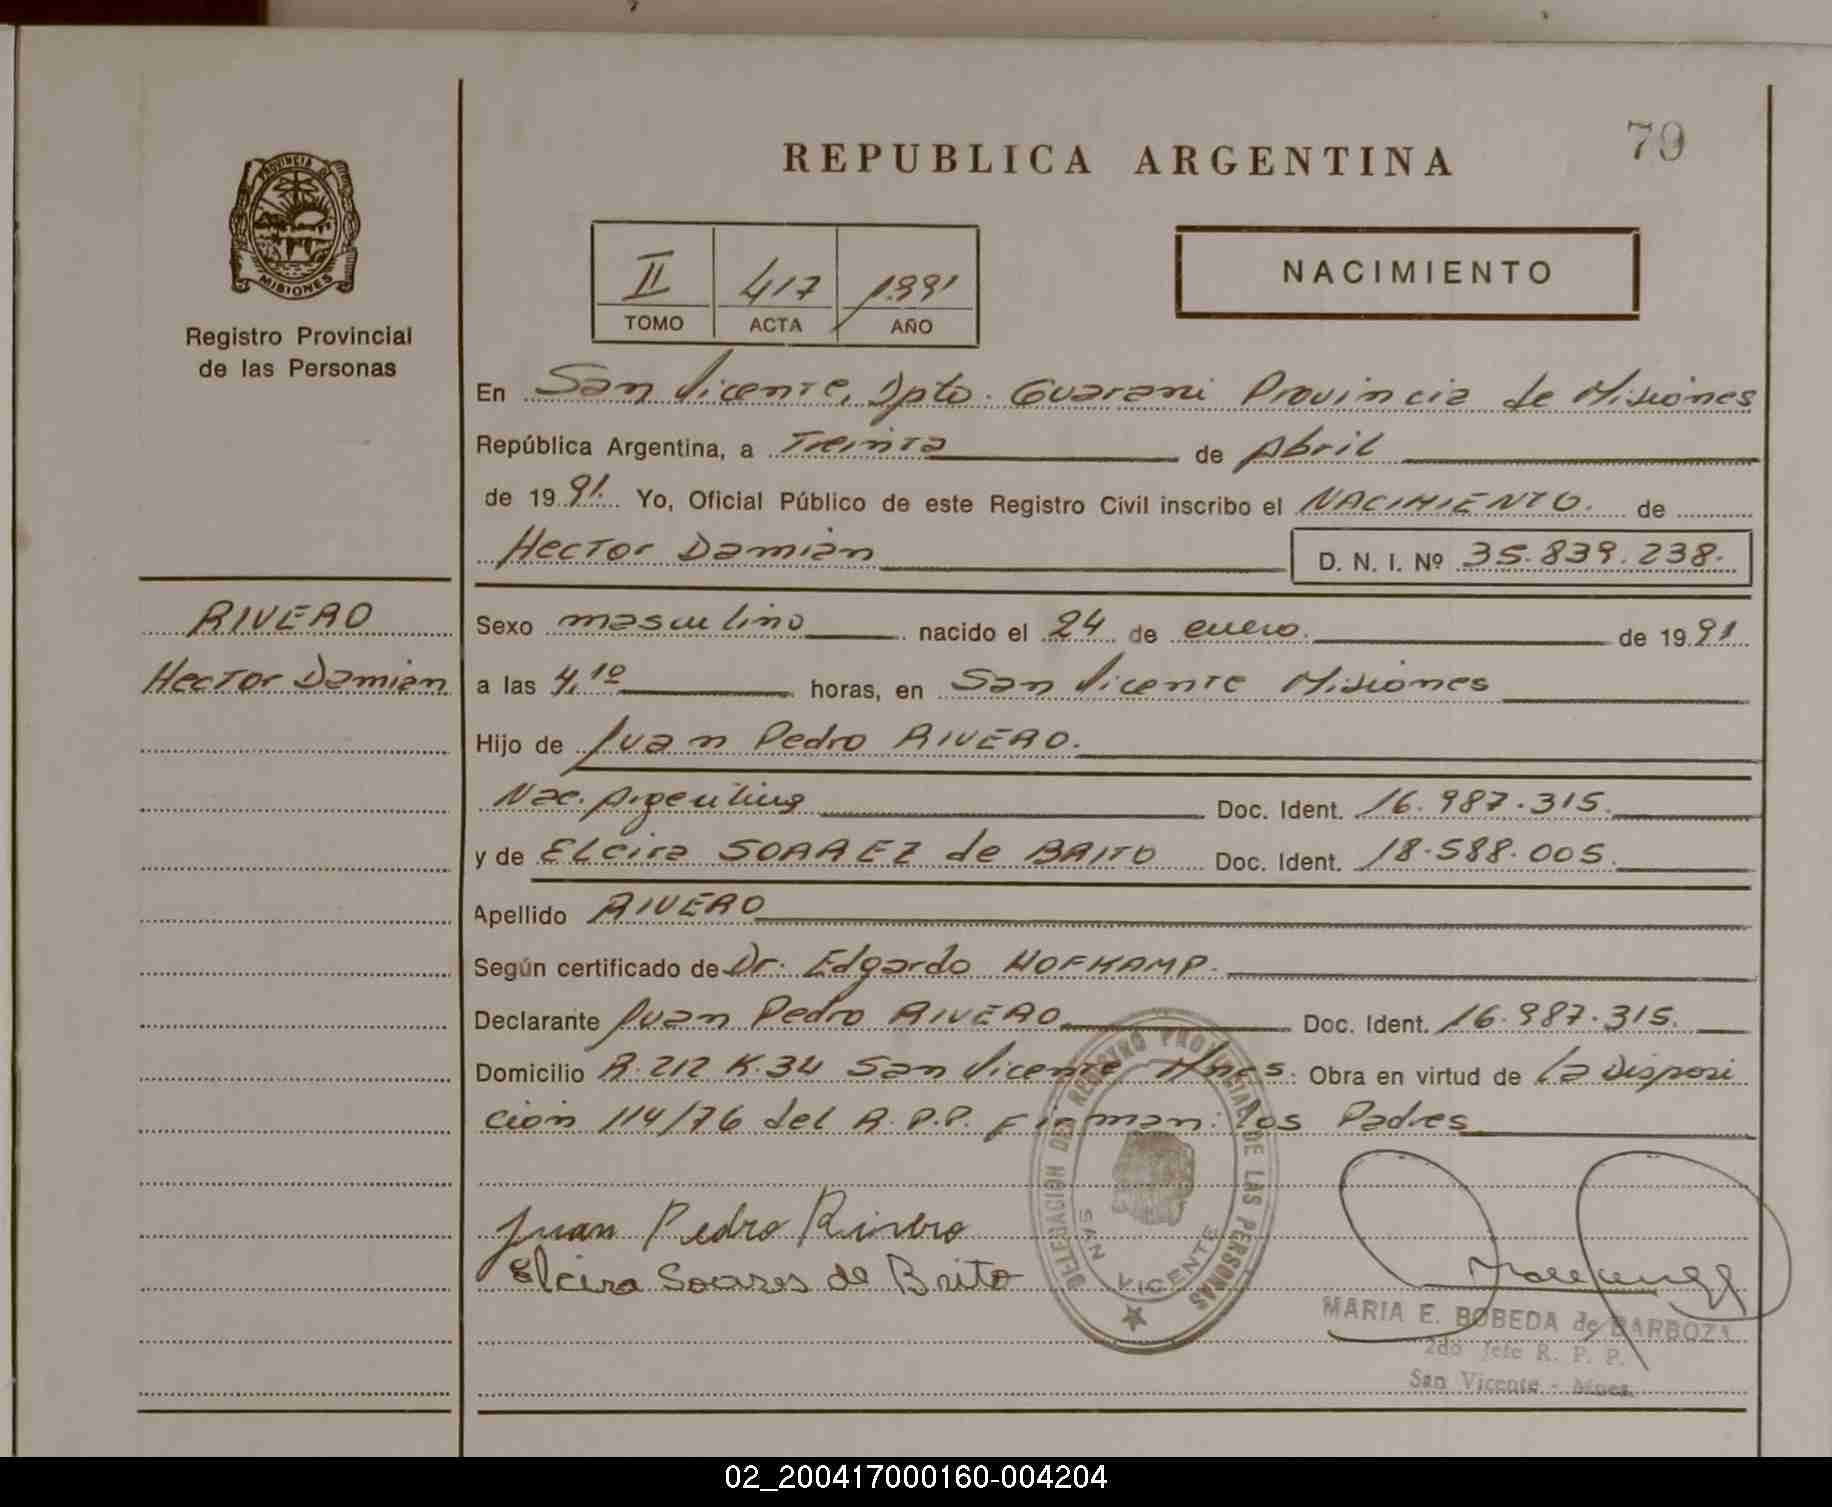 79
REPUBLICA ARGENTINA
PROVINCIA DE
MISIONES
Registro Provincial
de las Personas
II 417 1991
TOMO ACTA AÑO
NACIMIENTO
En San Vicente, Dpto. Guarani Provincia de Misiones
República Argentina, a Treinta de Abril
de 1991. Yo, Oficial Público de este Registro Civil inscribo el NACIMIENTO. de
Hector Damián D. N. I. Nº 35.839.238.
RIVERO
Hector Damián
Sexo masculino nacido el 24 de enero. de 1991
a las 4,10 horas, en San Vicente Misiones
Hijo de Juan Pedro RIVERO.
Nac. Argentina Doc. Ident. 16.987.315.
y de Elcira SOAREZ de BRITO Doc. Ident. 18.588.005.
Apellido RIVERO
Según certificado de Dr. Edgardo HOFKAMP.
Declarante Juan Pedro RIVERO Doc. Ident. 16.987.315.
Domicilio R.212 K.34 San Vicente Mnes. Obra en virtud de La Disposi
ción 114/76 del R.P.P. Firman: los Padres
DELEGACION DEL REGISTRO PROVINCIAL DE LAS PERSONAS
SAN VICENTE
Juan Pedro Rivero
Elcira Soares de Brito
MARIA E. BOBEDA de BARBOZA
2do Jefe R. P. P.
San Vicente - Mnes.
02_200417000160-004204